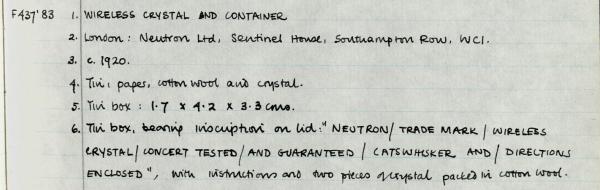 F437'83 1. WIRELESS CRYSTAL AND CONTAINER
2. London: Neutron Ltd, Sentinel House, Southampton Row, WC1.
3. c. 1920.
4. Tin; paper, cotton wool and crystal.
5. Tin box: 1.7 x 4.2 x 3.3 cms.
6. Tin box, bearing inscription on lid: "NEUTRON/ TRADE MARK / WIRELESS
CRYSTAL/ CONCERT TESTED/ AND GUARANTEED / CATSWHISKER AND/ DIRECTIONS
ENCLOSED", with instructions and two pieces of crystal packed in cotton wool.